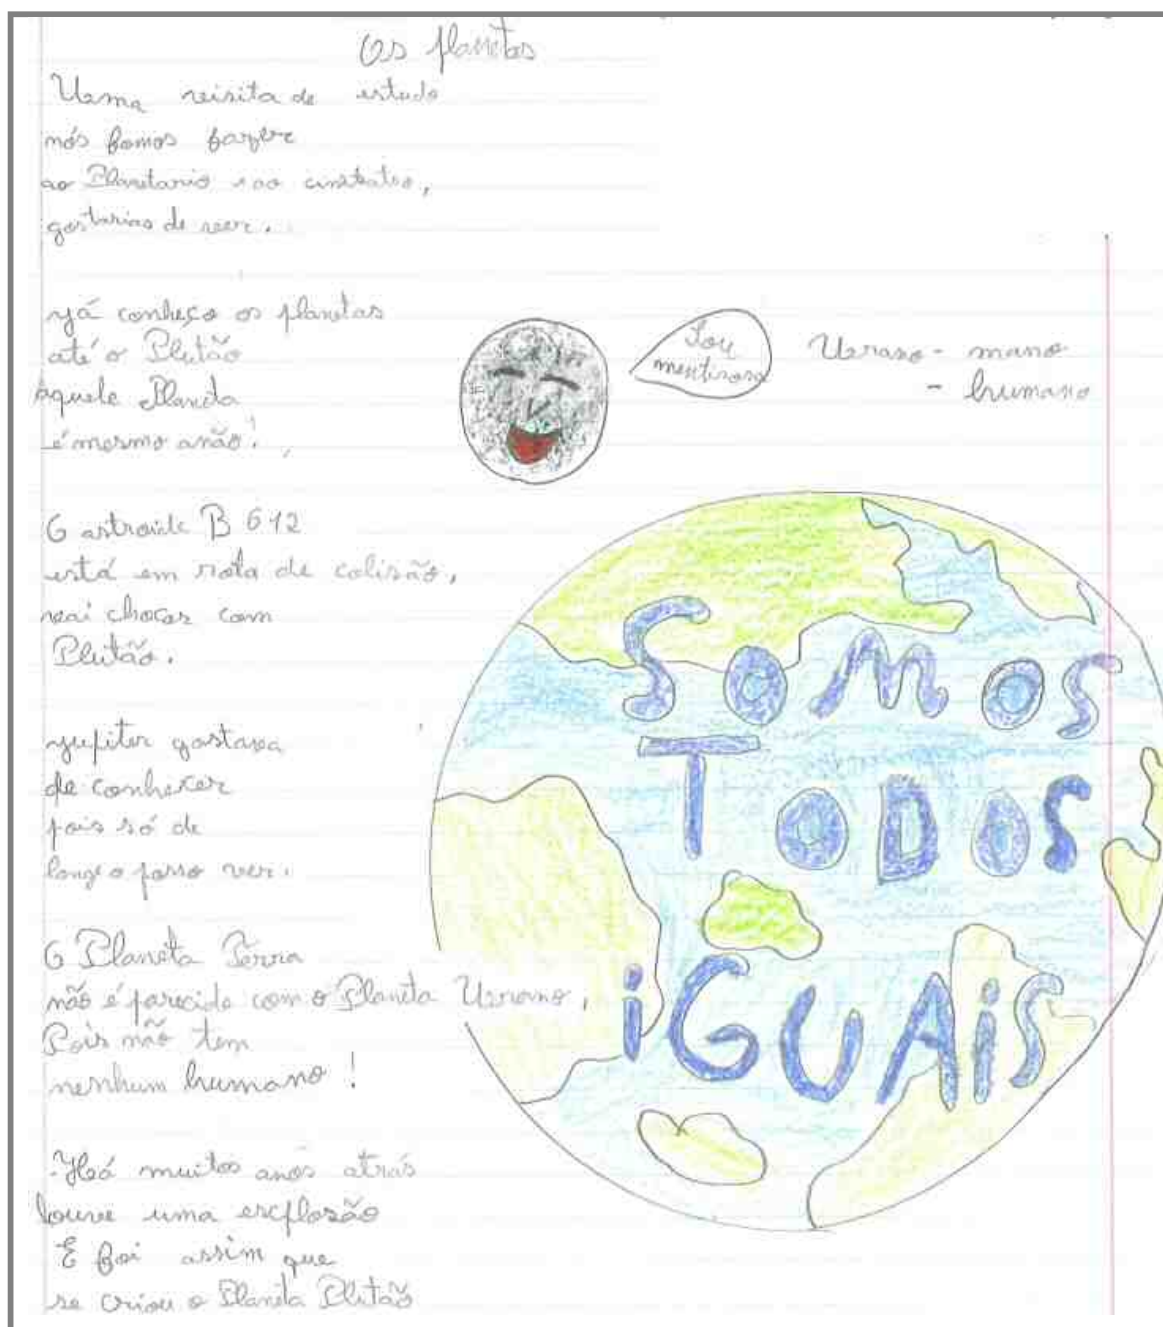 Os planetas
Uma visita de estudo
nós fomos fazer
ao Planetario e ao cineteatro,
gostarias de ver.
já conheço os planetas
até o Plutão
aquele Planeta
é mesmo anão!
O astroide B 612
está em rota de colisão,
vai chocar com
Plutão.
jupiter gostava
de conhecer
pois só de
longe o posso ver.
O Planeta Terra
não é parecido com o Planeta Urano,
Pois não tem
nenhum humano!
Há muitos anos atrás
houve uma explosão
E foi assim que
se criou o Planeta Plutão
Sou
mentirosa
Urano - mano
- humano
SOMOS
TODOS
iGUAiS